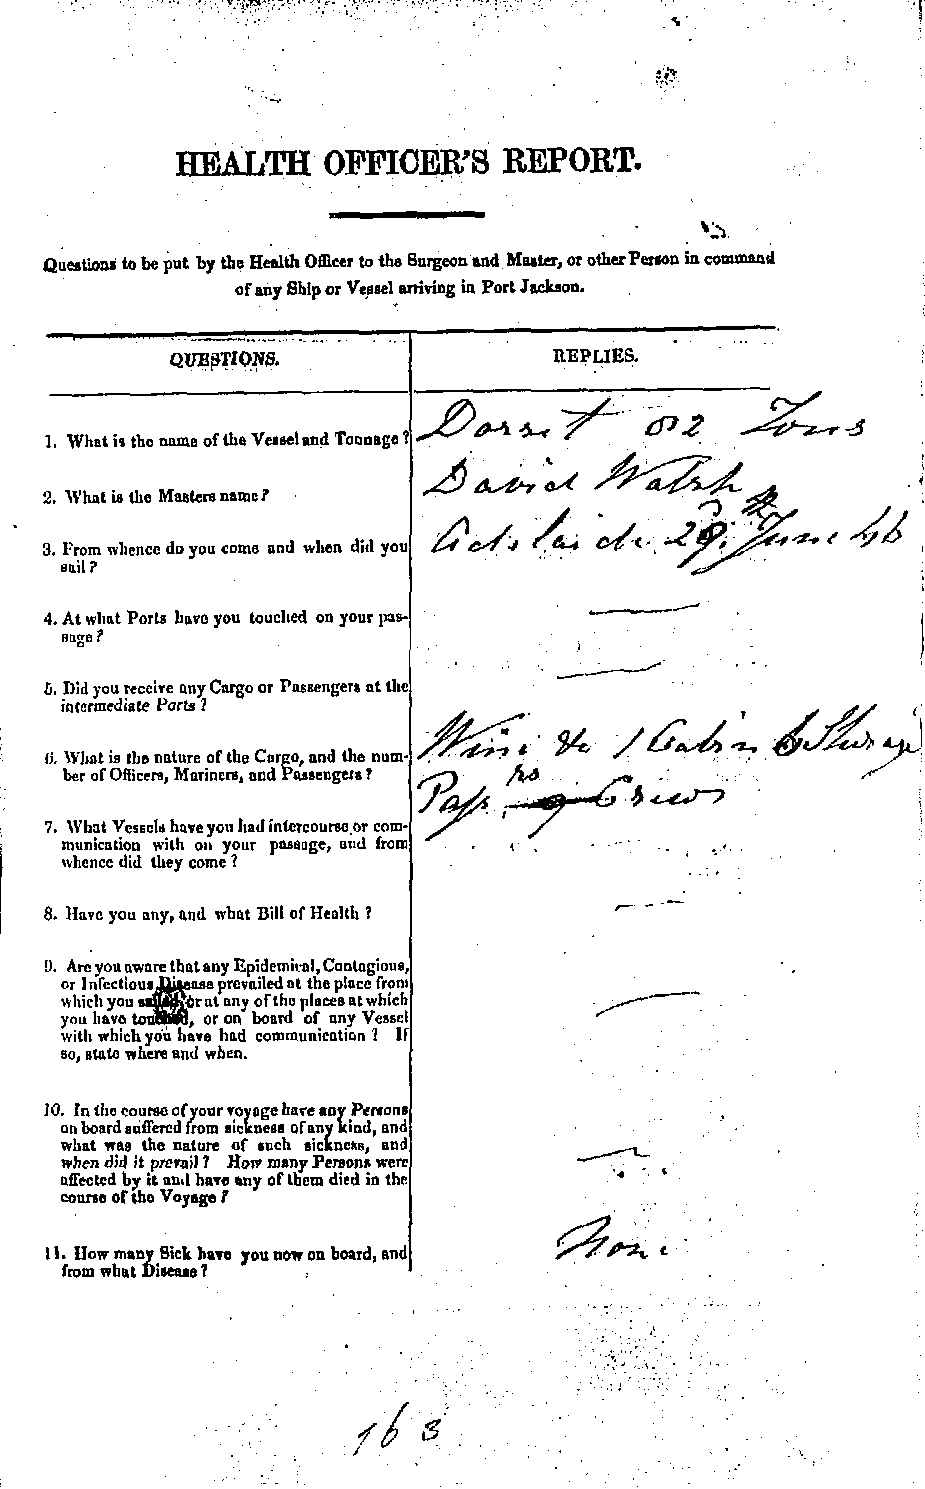 HEALTH OFFICER'S REPORT.
Questions to be put by the Health Officer to the Surgeon and Master, or other Person in command
of any Ship or Vessel arriving in Port Jackson.
QUESTIONS. REPLIES.
1. What is the name of the Vessel and Tonnage? Dorset 82 Tons
2. What is the Masters name? David Walsh
3. From whence do you come and when did you Adelaide 29th June 46
sail?
4. At what Ports have you touched on your pas-
sage?
5. Did you receive any Cargo or Passengers at the
intermediate Ports?
6. What is the nature of the Cargo, and the num- Wine &c 1 Cabin 6 Steerage
ber of Officers, Mariners, and Passengers? Passrs Crew
7. What Vessels have you had intercourse or com-
munication with on your passage, and from
whence did they come?
8. Have you any, and what Bill of Health?
9. Are you aware that any Epidemical, Contagious,
or Infectious Disease prevailed at the place from
which you sailed, or at any of the places at which
you have touched, or on board of any Vessel
with which you have had communication? If
so, state where and when.
10. In the course of your voyage have any Persons
on board suffered from sickness of any kind, and
what was the nature of such sickness, and
when did it prevail? How many Persons were
affected by it and have any of them died in the
course of the Voyage?
11. How many Sick have you now on board, and None
from what Disease?
163